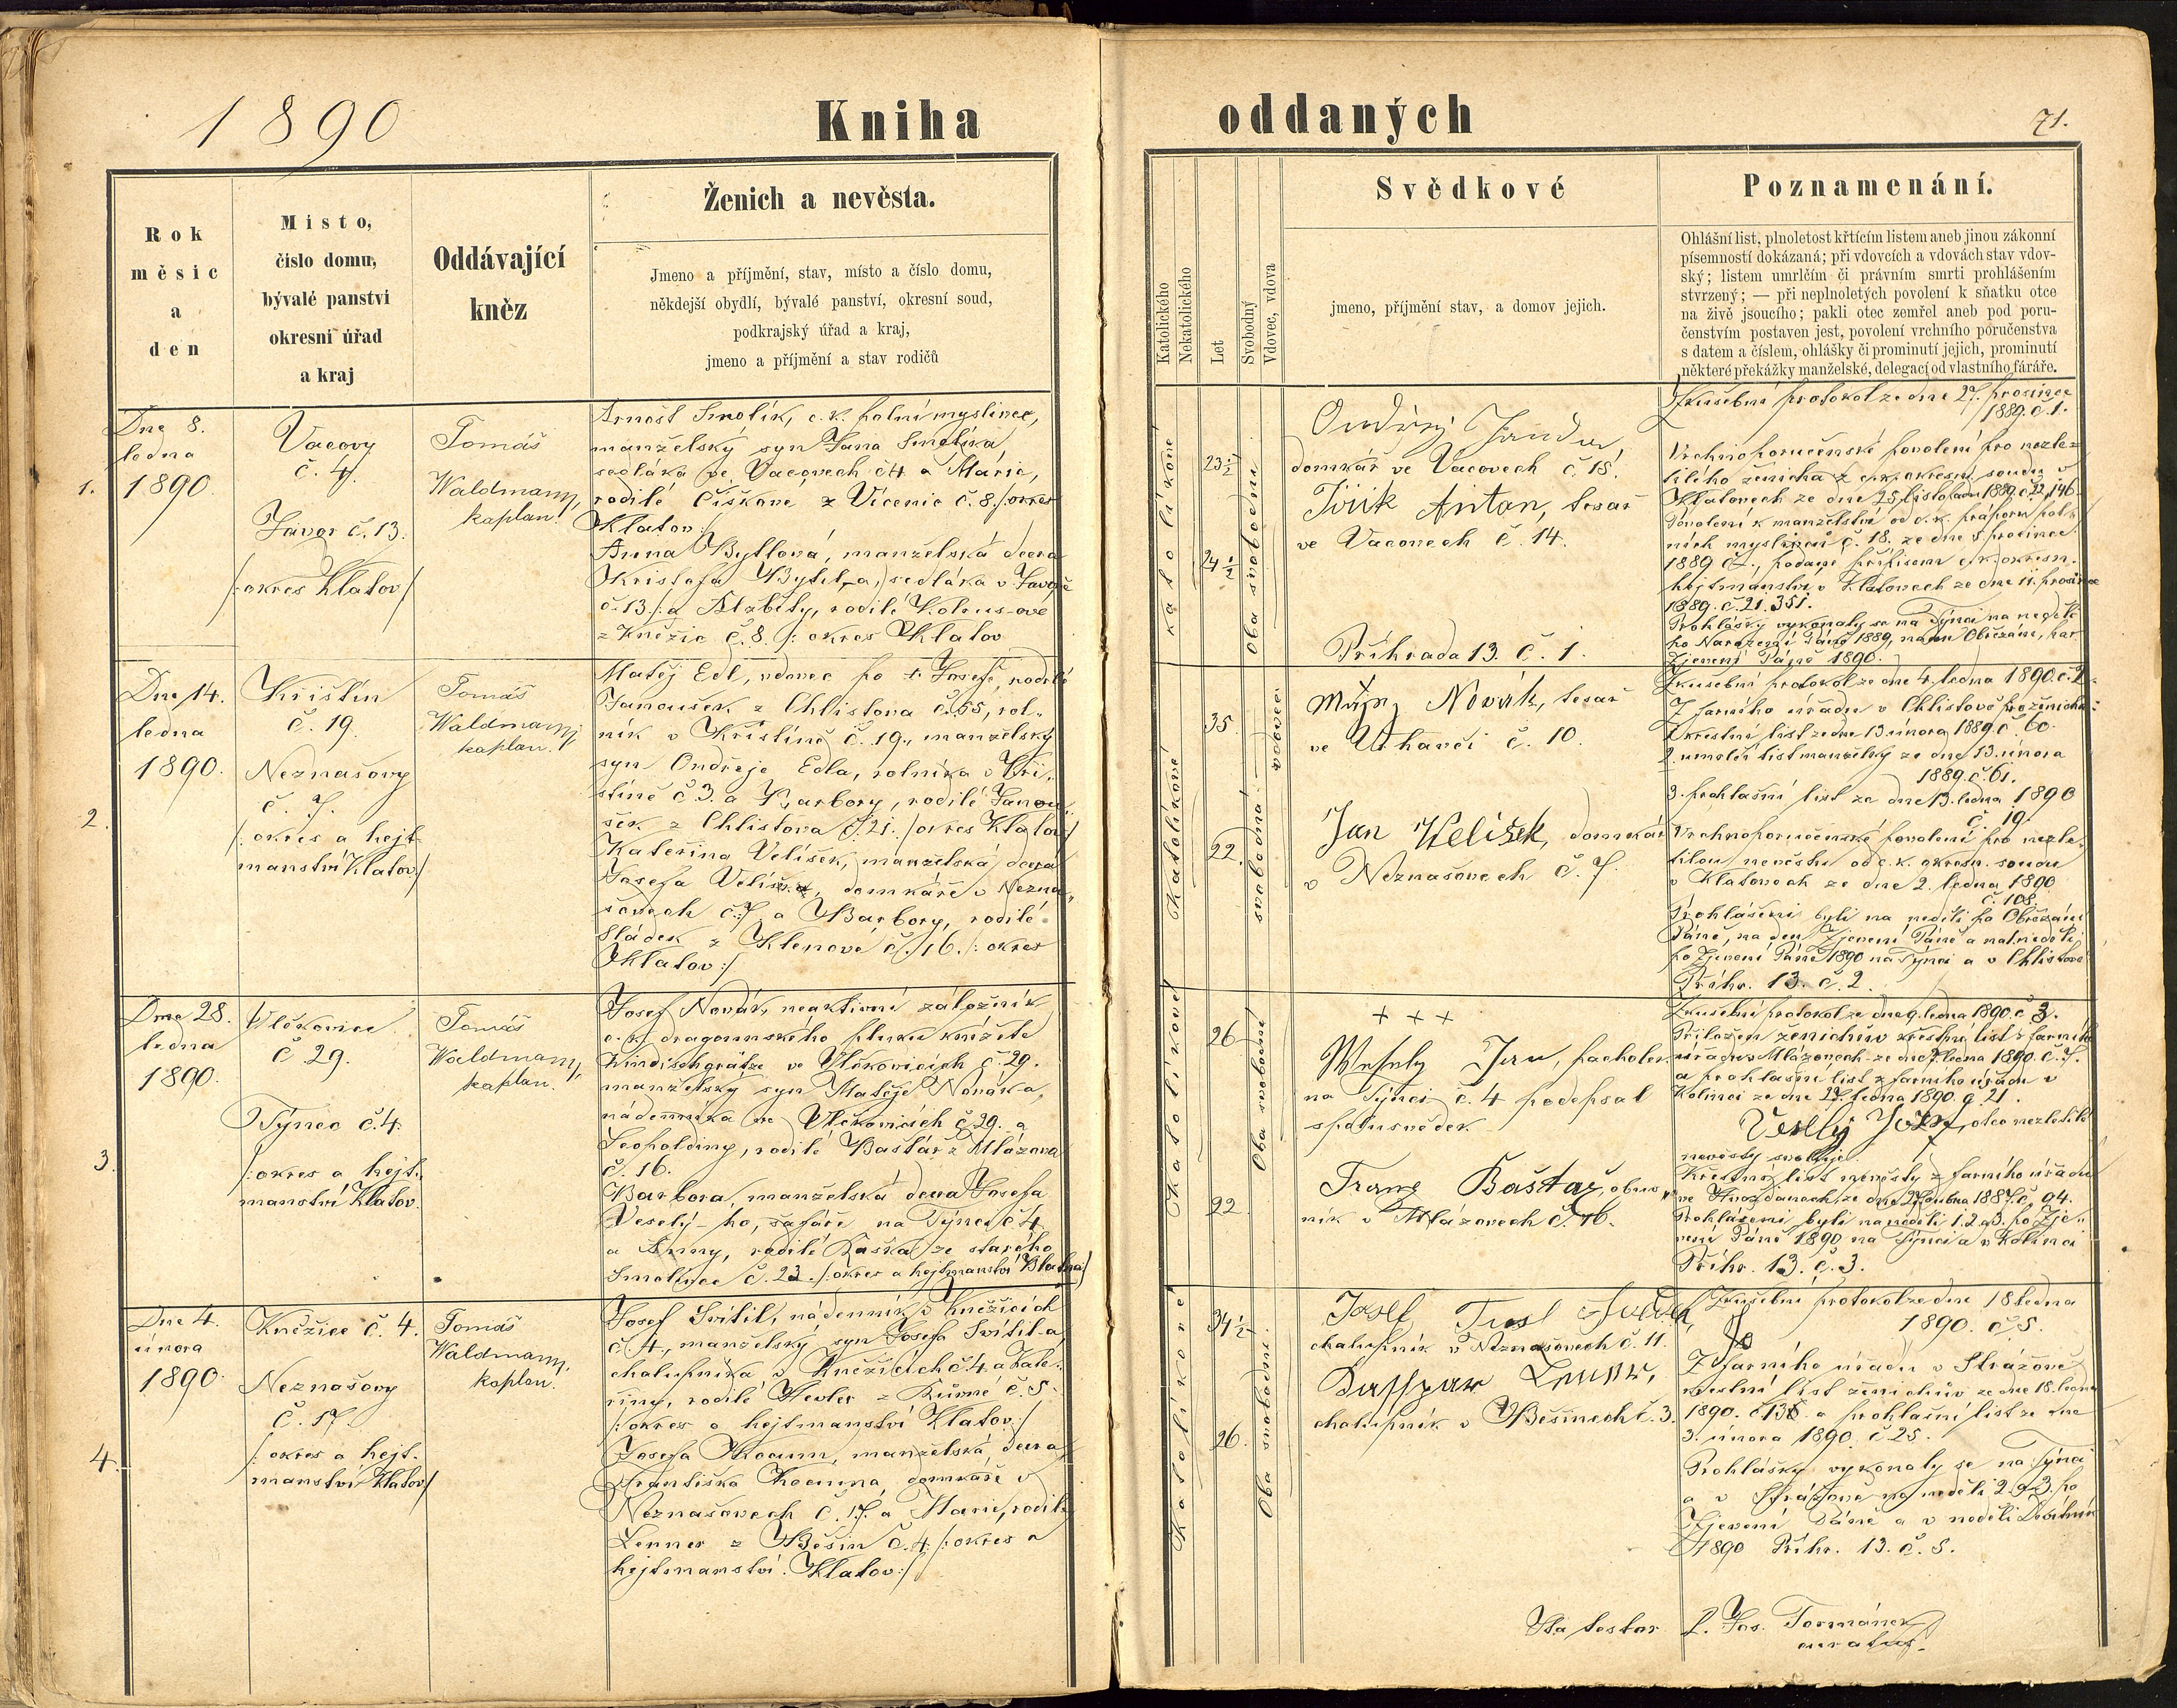 1890
Kniha
oddaných
71.
Rok
měsíc
a
den
Místo,
číslo domu,
bývalé panství
okresní úřad
a kraj
Oddávající
kněz
Ženich a nevěsta.
Jmeno a příjmění, stav, místo a číslo domu,
někdejší obydlí, bývalé panství, okresní soud,
podkrajský úřad a kraj,
jmeno a příjmění a stav rodičů
Katolického
Nekatolického
Let
Svobodný
Vdovec, vdova
Svědkové
jmeno, příjmění stav, a domov jejich.
Poznamenání.
Ohlášní list, plnoletost křtícím listem aneb jinou zákonní
písemností dokázaná; při vdovcích a vdovách stav vdov-
ský; listem umrlčím či právním smrti prohlášením
stvrzený; — při neplnoletých povolení k sňatku otce
na živě jsoucího; pakli otec zemřel aneb pod poru-
čenstvím postaven jest, povolení vrchního poručenstva
s datem a číslem, ohlášky či prominutí jejich, prominutí
některé překážky manželské, delegací od vlastního faráře.
1.
Dne 8.
ledna
1890.
Vacovy
č. 4.
Javor č. 13.
/:okres Klatov/
Tomáš
Waldmann,
kaplan.
Arnošt Smolík, c. k. polní myslivec,
manželský syn Jana Smolíka
sedláka ve Vacovech č 4 a Marie,
rodilé Číškove z Vícenic č. 8. /:okres
Klatov:/
Anna Bytlová, manželská dcera
Kristofa Bytel-a, sedláka v Javoře
č. 13./: a Alžběty, rodilé Kolrus-ove
z Kněžic č. 8. /: okres Klatov
katolíkové
23 1/2
24 1/2
Oba svobodni
Ondřej Janda
domkář ve Vacovech č. 18.
Jiřík Anton, tesař
ve Vacovech č. 14.
Příhrada 13. č. 1.
Zkušební protokol ze dne 27. prosince
1889. č. 1.
Vrchnoporučenské povolení pro nezle-
tilého ženicha z c. k. okresn. soudu v
Klatovech ze dne 25. listopadu 1889. č. 22,146.
Povolení k manželství od c. k. praporu pol-
ních myslivců č. 18. ze dne 5 prosince
1889 č., podané přípisem c. k. okresn.
hejtmanství v Klatovech ze dne 11. prosince
1889. č. 21.351.
Prohlášky vykonaly se na Týnci na neděli
po Narození Páně 1889, na den Obřezání, na
Zjevení Páně 1890.
2.
Dne 14.
ledna
1890.
Křištín
č. 19.
Neznašovy
č. 7.
/: okres a hejt-
manství Klatov:/
Tomáš
Waldmann,
kaplan.
Matěj Edl, vdovec po + Josefě, rodilé
Janoušek z Chlistova č. 55, rol-
ník v Křištíně č. 19., manželský
syn Ondřeje Edla, rolníka v Kři-
štíně č 3. a Barbory, rodilé Janou-
šek z Chlistova č. 21. /okres Klatov/
Kateřina Velíšek, manželská dcera
Josefa Velíška, domkáře v Nezna-
šovech č. 7 a Barbory, rodilé
Sládek z Klenové č. 16. /: okres
Klatov:/
Katolíkové
35.
22.
vdovec
svobodná
Matěj Novák, tesař
ve Uhavči č. 10.
Jan Welíšek, domkář
v Neznašovech č. 7.
Zkušební protokol ze dne 4. ledna 1890. č. 2.
Z farního úřadu v Chlistově pro ženicha:
1. křestní list ze dne 13. února 1889. č. 60.
2. umrlčí list manželky ze dne 13. února
1889. č. 61.
3. prohlašní list ze dne 13. ledna 1890
č. 19.
Vrchnoporučenské povolení pro nezle-
tilou nevěstu od c. k. okresn. soudu
v Klatovech ze dne 2. ledna 1890
č. 108.
Prohlášeni byli na neděli po Obřezání
Páně, na den Zjevení Páně a na 1. neděli
po Zjevení Páně 1890 na Týnci a v Chlistově
Příhr. 13. č. 2.
3.
Dne 28.
ledna
1890.
Vlčkovice
č 29.
Týnec č. 4.
/:okres a hejt-
manství Klatov.
Tomáš
Waldmann,
kaplan.
Josef Novák, neaktivní záložník
c. k. dragounského pluku knížete
Windischgrätze ve Vlčkovicích č 29.
manželský syn Matěje Nováka,
nádenníka ve Vlčkovicích č 29. a
Leopoldiny, rodilé Baštář z Mlázova
č. 16.
Barbora, manželská dcera Josefa
Veselý-ho, šafáře na Týnci č 4
a Anny, rodilé Kaska ze starého
Smolivce č. 23. /:okres a hejtmanství Blatná/
Katolíkové
26
22
Oba svobodní
+ + +
Wesely Jan, pacholek
na Týnci č. 4 podepsal
spolusvědek
Franz Baštař, obuv-
ník v Mlázovech č. 16.
Zkušební protokol ze dne 9. ledna 1890. č 3.
Přiložen ženichův křestní list z farního
úřadu v Mlázovech ze dne 7. ledna 1890. č. 7.
a prohlašní list z farního úřadu v
Kolinci ze dne 27. ledna 1890. č 21.
Vesely Josef, otec nezletilé
nevěsty svoluje.
Křestní list nevěsty z farního úřadu
ve Hvožďanech, ze dne 1887. č. 94.
Prohlášeni byli na neděli 1. 2. a 3. po Zje-
vení Páně 1890 na Týnci a v Kolinci
Příhr. 13. č. 3.
4.
Dne 4.
února
1890.
Kněžice č. 4.
Neznašovy
č. 17.
/: okres a hejt-
manství Klatov/
Tomáš
Waldmann,
kaplan.
Josef Svítil, nádenník v Kněžicích
č. 4., manželský syn Josefa Svítil-a,
chalupníka v Kněžicích č. 4 a Kate-
řiny, rodilé Hevler z Běšiné č. 5.
/: okres a hejtmanství Klatov:/
Josefa Kocum, manželská dcera
Františka Kocuma, domkáře v
Neznašovech č. 17. a Marie, rodilé
Lenner z Běšin č. 4. /:okres a
hejtmanství Klatov:/
Katolíkové
34 1/2
26.
Oba svobodní
Josef
chalupník v Neznašovech č. 11.
chalupník v Běšinech č. 3.
Zkušební protokol ze dne 18. ledna
1890. č. 5.
Z farního úřadu v Strážově
křestní list ženichův ze dne 18. ledna
1890. č 13 a prohlašní list ze dne
3. února 1890. č 25.
Prohlášky vykonaly se na Týnci
a v Strážově na neděli 2. a 3. po
Zjevení Páně a v neděli Devítník
1890 Příhr. 13. č. 5.
Ita testor P. Jos. Formánek
curatus.